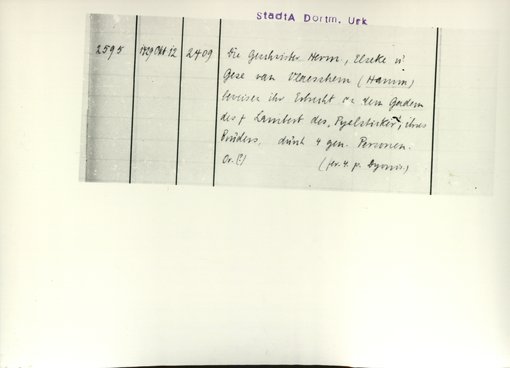 StadtA Dortm. Urk
2595 1429 Okt 12 2409 Die Geschwister Herm, Elseke u.
Gese van (Hamm)
beweisen ihr Erbrecht an dem Gadem
des † Lambert des "Pyelsticker", ihres
Bruders, durch 4 gen. Personen.
Or. (fer. 4. p. Dyonis.)